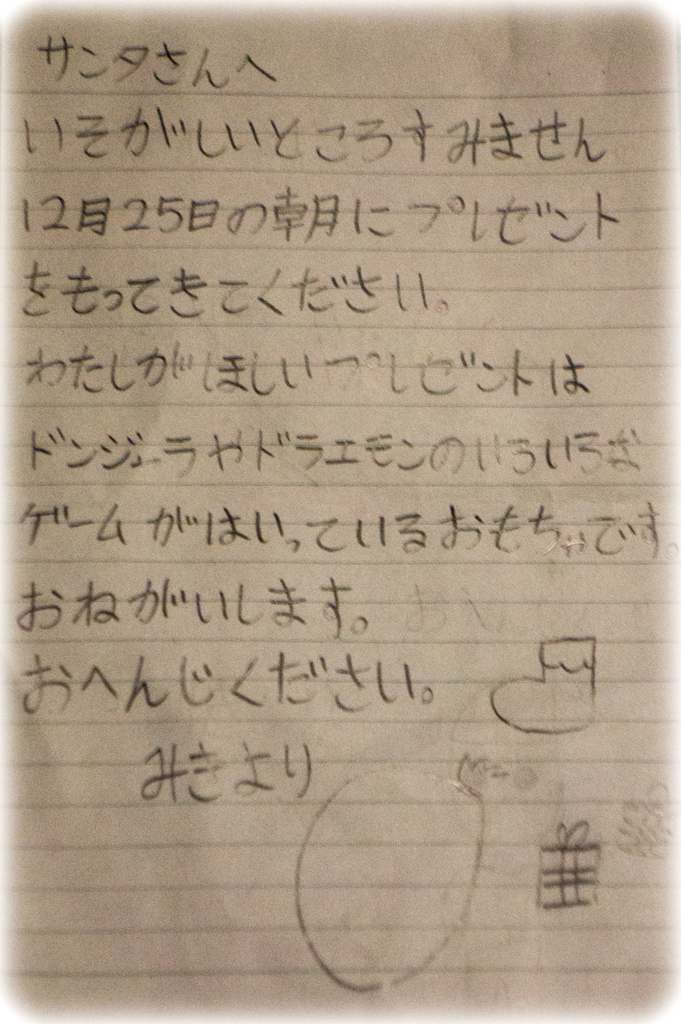 サンタさんへ
いそがしいところすみません
12月25日の朝にプレゼント
をもってきてください。
わたしがほしいプレゼントは
ドンジャラやドラエモンのいろいろな
ゲームがはいっているおもちゃです。
おねがいします。
おへんじください。
みきより